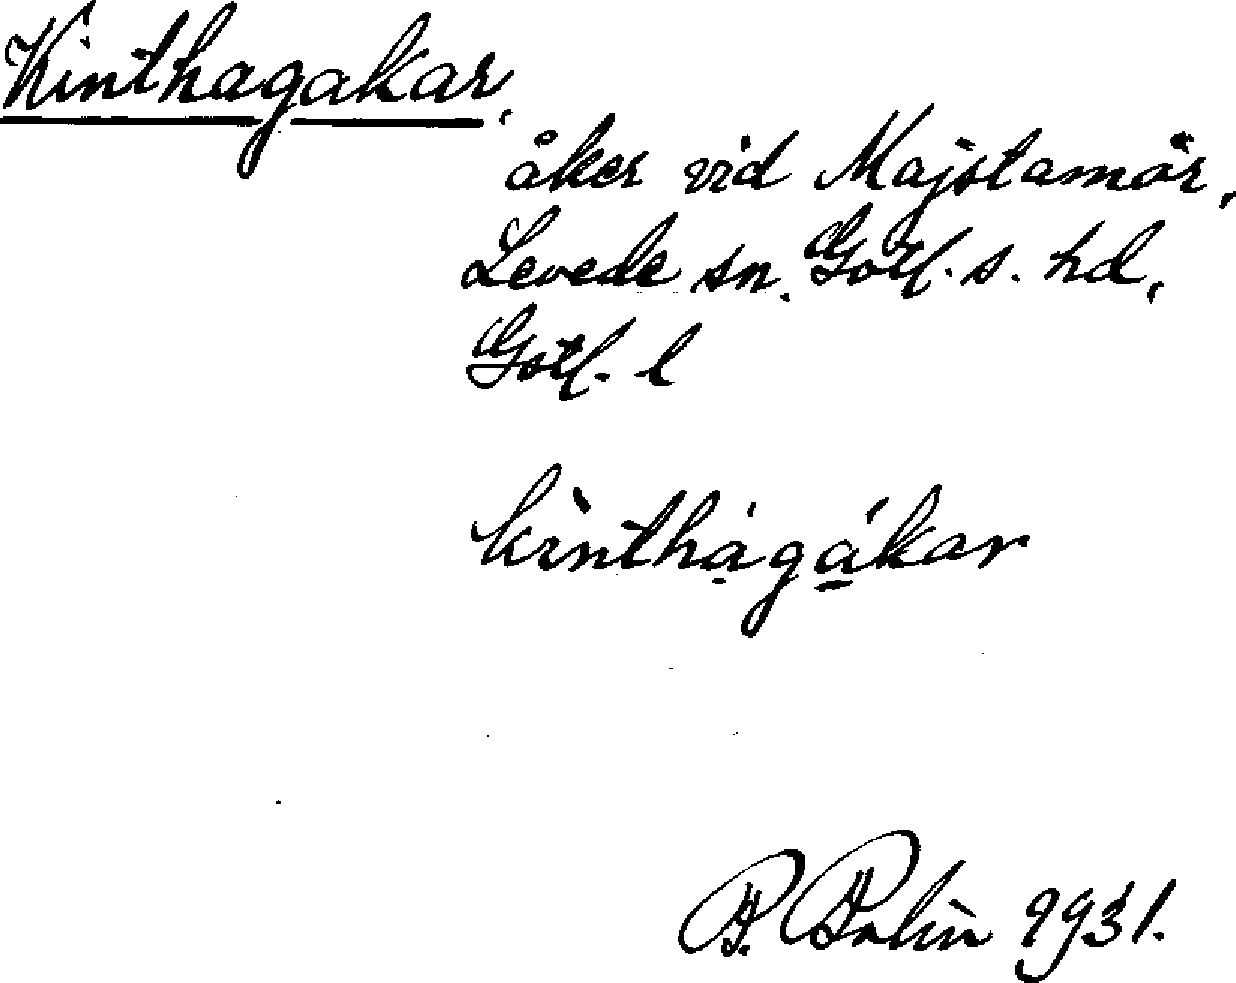 Kinthagakar,
åker vid Majstamör,
Levede sn. Gotl. s. hd,
Gotl. l
kìntḥágákar
1931.